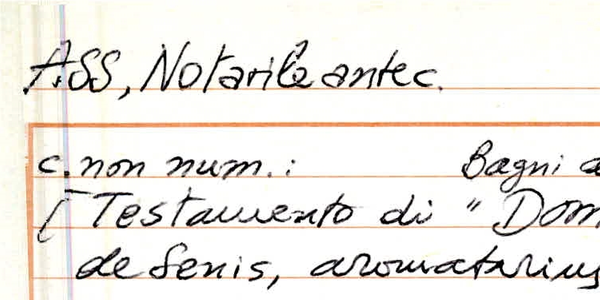 ASS, Notarile antec.
c. non num.: Bagni a
[Testamento di "Dom
de Senis, aromatarius